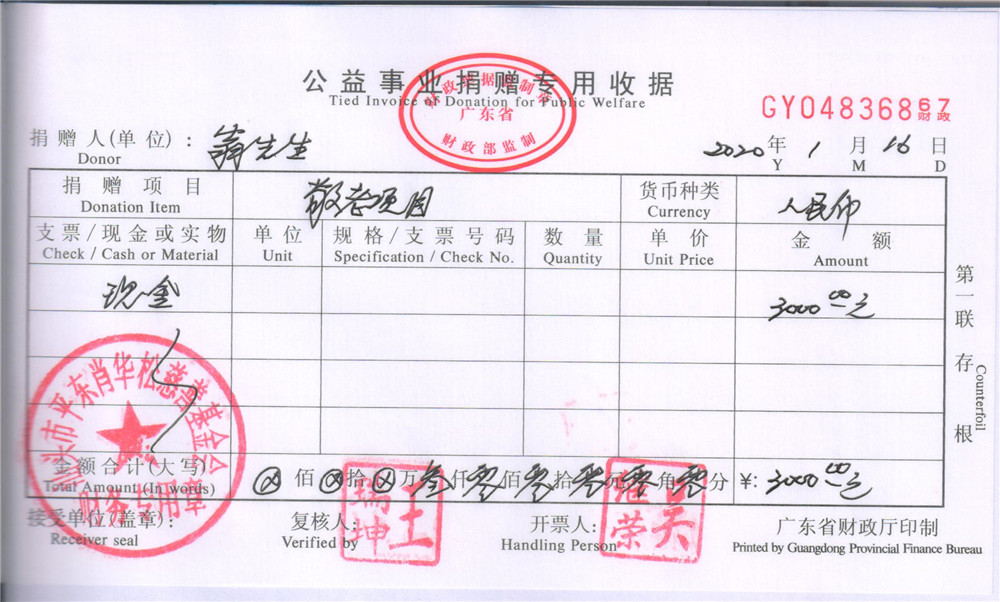 公益事业捐赠专用收据
Tied Invoice of Donation for Public Welfare
财政票据监制章
广东省
财政部监制
GY04836867
财政
捐赠人(单位)：翁先生
Donor
2020年 1 月 16 日
Y M D
捐赠项目 敬老项目 货币种类 人民币
Donation Item Currency
支票/现金或实物 单位 规格/支票号码 数量 单价 金额
Check / Cash or Material Unit Specification / Check No. Quantity Unit Price Amount
现金 3000.00元
第一联 存根
Counterfoil
市平东肖华松慈善基金会
财务专用章
金额合计(大写) ⊗佰⊗拾⊗万叁仟零佰零拾零元零角零分 ¥: 3000.00元
Total Amount (In words)
接受单位(盖章)： 复核人： 开票人： 广东省财政厅印制
Receiver seal Verified by Handling Person Printed by Guangdong Provincial Finance Bureau
王瑞坤
荣